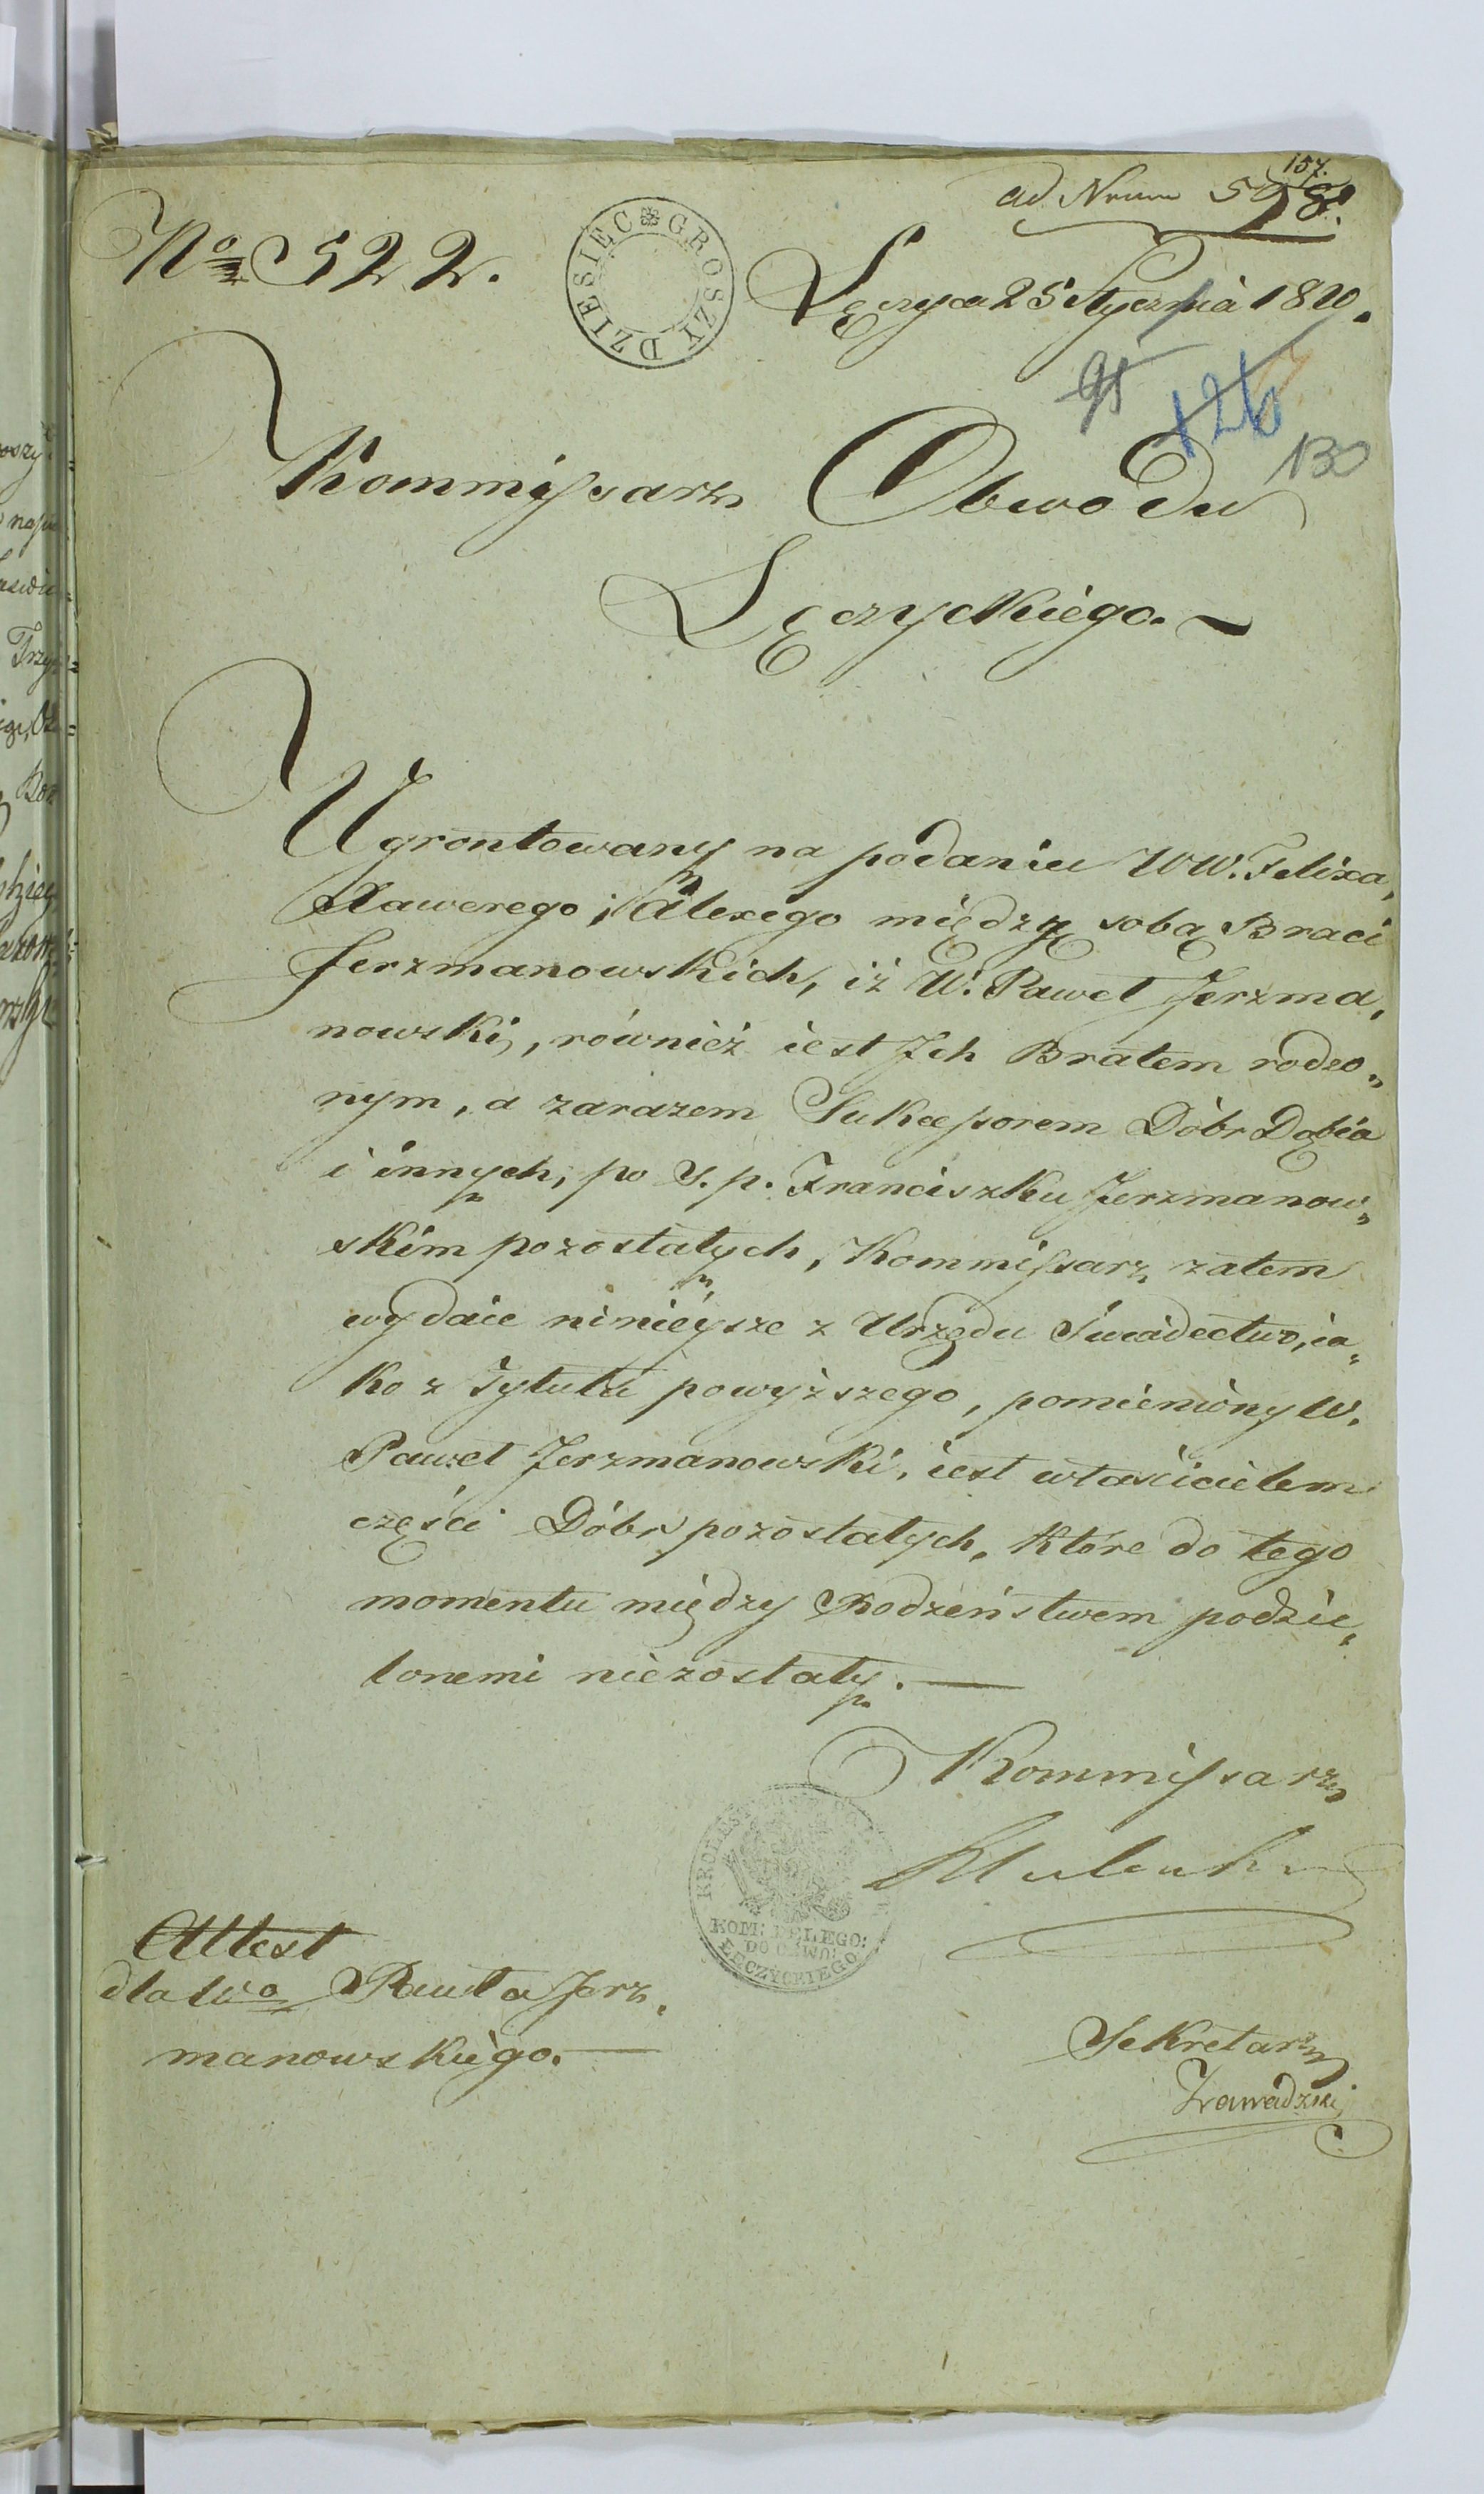 157.
ad Nrum 598.
No 522.
DZIESIĘC GROSZY
Łęczyca 25 Stycznia 1820.
95
126
130
Kommissarz Obwodu
Łęczyckiego. ~
Ugrontowany na podaniu WW. Felixa,
Xawerego i Alexego między sobą Braci
Jerzmanowskich, iż W. Paweł Jerzma„
nowski, również iest Jch Bratem rodzo„
nym, a zarazem Sukcessorem Dóbr Dąbia
i innych, po Ś. p. Franciszku Jerzmanow„
skim pozostałych, Kommissarz zatem
wydaie ninieysze z Urzędu Świadectwo, ia„
ko z Tytułu powyższego, pomieniony W.
Paweł Jerzmanowski, iest właścicielem
części Dóbr pozostałych, które do tego
momentu między Rodzeństwem podzie„
lonemi niezostały. —
Kommissarz
KOM: DELEGO:
DO OBWO:
ŁĘCZYCKIEGO
Attest
dla Wo Pawła Jerz„
manowskiego. —
Sekretarz
Zawadzki